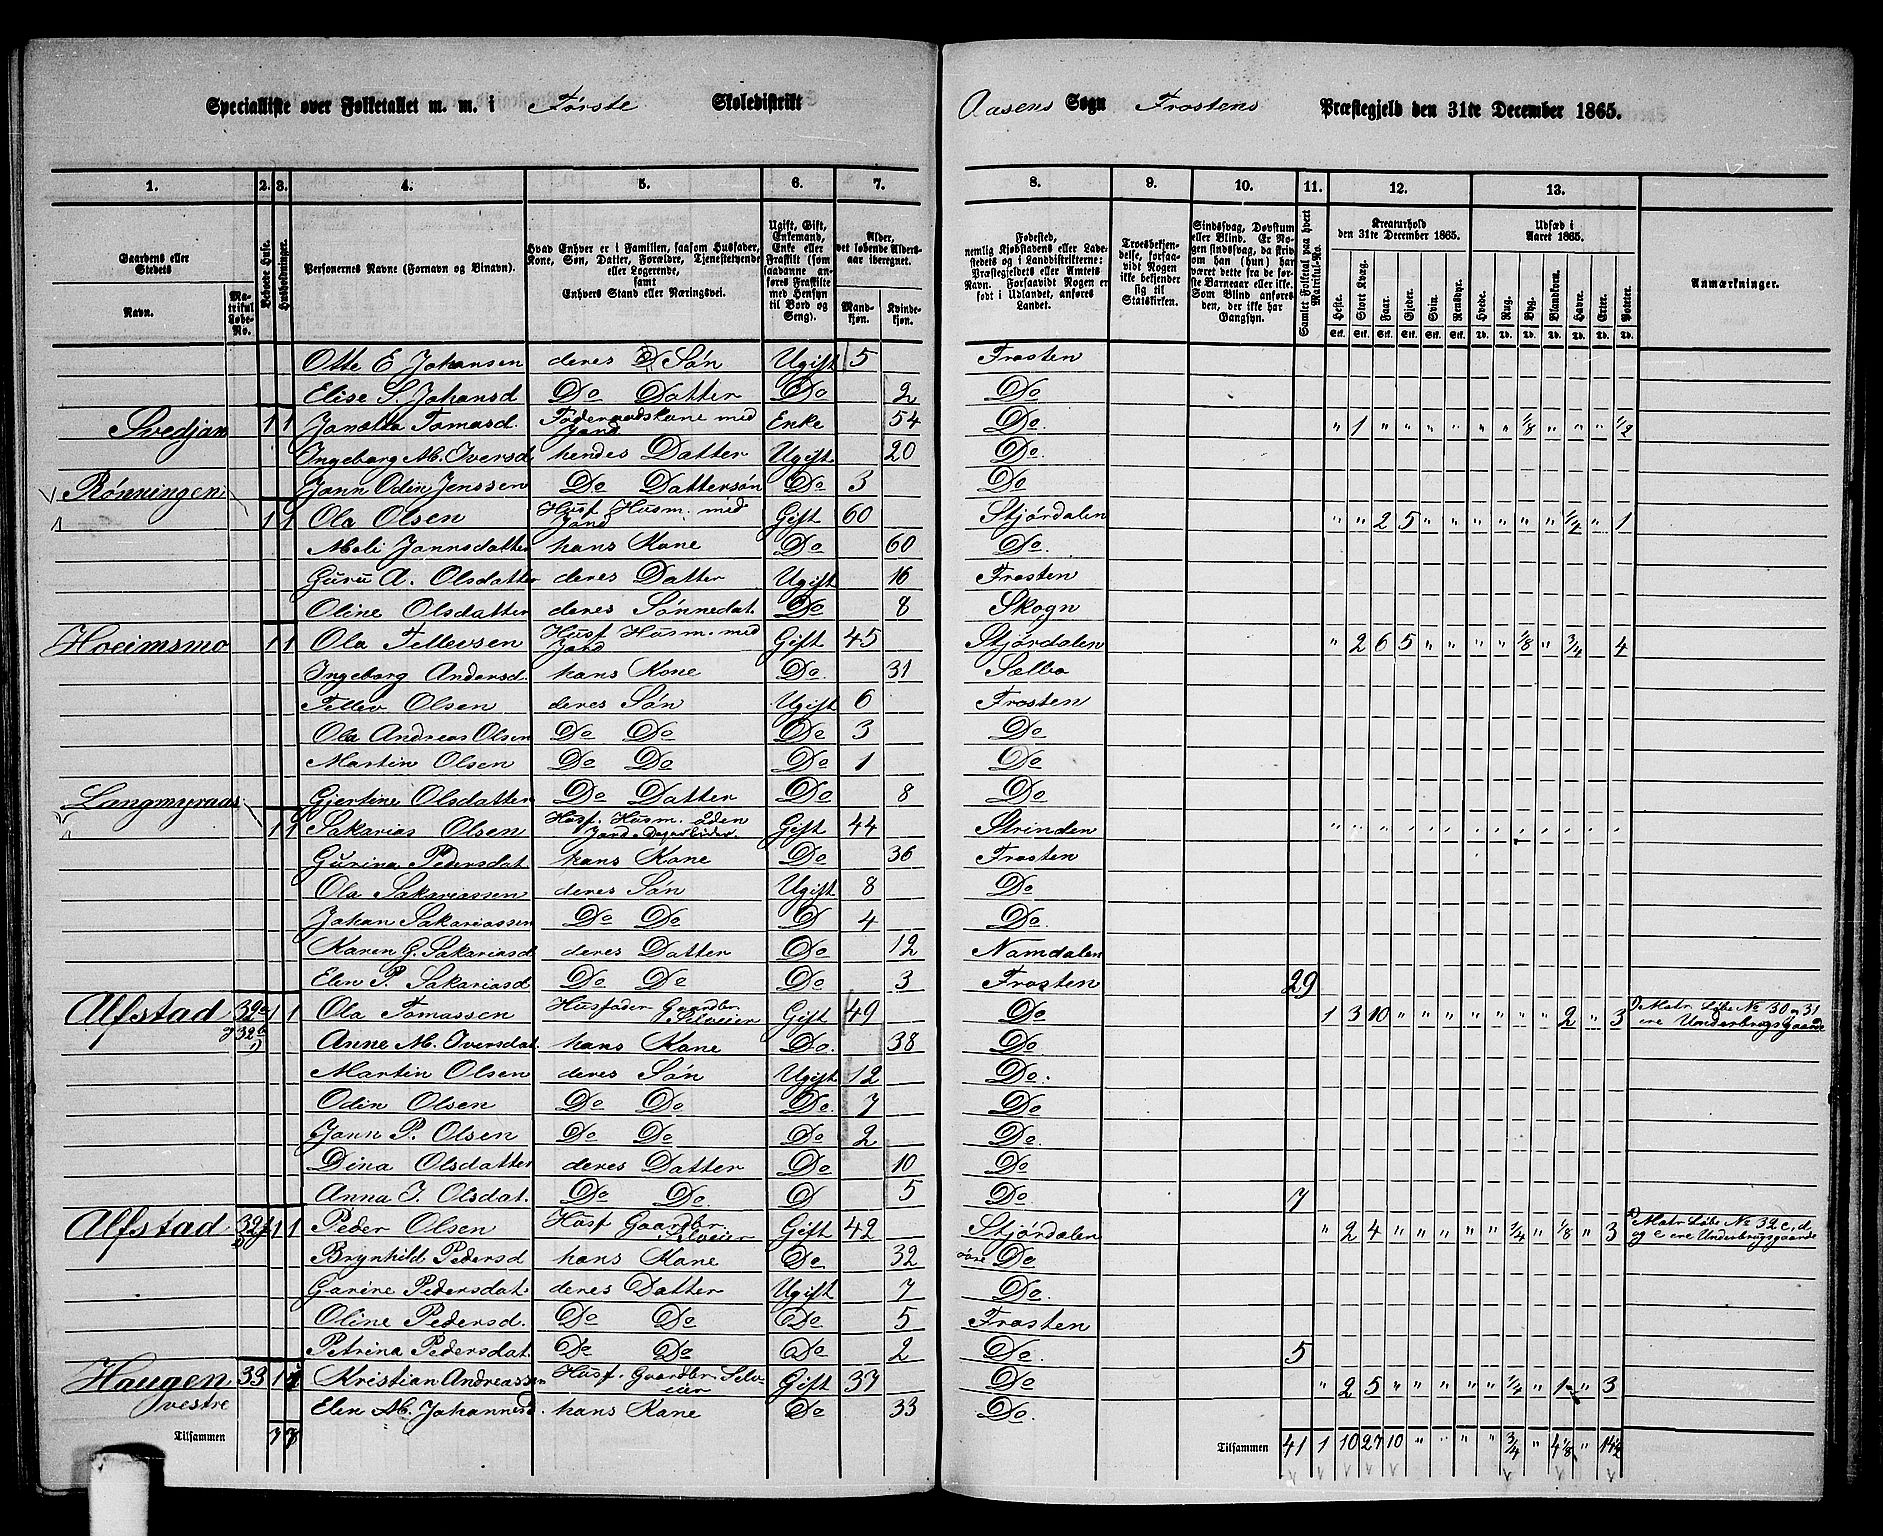 Specialliste over Folketallet m. m. i Første Skoledistrikt Aasens Sogn Frostens Præstegjeld den 31te December 1865.
1. 2. 3. 4. 5. 6. 7. 8. 9. 10. 11. 12. 13.
Gaardenes eller Stedets Navn. Matrikul Løbe-No. Beboede Huse. Husholdninger. Personernes Navne (Fornavn og Binavn). Hvad Enhver er i Familien, saasom Husfader, Kone, Søn, Datter, Forældre, Tjenestetyende eller Logerende, samt Enhvers Stand eller Næringsvei. Ugift, Gift, Enkemand, Enke eller Fraskilt (som saadanne anføres Fraskilte med Hensyn til Bord og Seng). Alder, det løbende Alders-aar iberegnet. Mandkjøn. Kvindekjøn.
Fødested, nemlig Kjøbstadens eller Ladestedets og i Landdistrikterne: Præstegjeldets eller Amtets Navn. Forsaavidt Nogen er født i Udlandet, anføres Landet. Troesbekjendelse, forsaavidt Nogen ikke bekjender sig til Statskirken. Sindssvag, Døvstum eller Blind. Er Nogen sindssvag, da skrives om han (hun) har været dette fra de første Barneaar eller ikke. Som Blind anføres den, der ikke har Gangsyn. Samlet Folketal paa hvert Matrikul-No. Kreaturhold den 31te December 1865. Heste. Stort Kvæg. Faar. Gjeder. Svin. Rensdyr. Udsæd i Aaret 1865. Hvede. Rug. Byg. Blandkorn. Havre. Erter. Poteter. Anmærkninger.
Otte E Johansen deres Søn Ugift 5 Frosten
Elise S. Johansd Do Datter Do 2 Do
Svedjan 1 1 Janetta Tomasd. Føderaadskone med Jord Enke 54 Do. " 1 " " " " " " 1/8 " " " 1/2
Ingeborg M. Iversd hendes Datter Ugift 20 Do.
Rønningen Jann Odin Jenssen Do Dattersøn Do 3 Do
1 1 Ola Olsen Husf Husm. med Jord Gift 60 Stjørdalen " " 2 5 " " " " " " 1/4 " 1
Meli Jonnsdatter hans Kone Do 60 Do.
Guru A. Olsdatter deres Datter Ugift 16 Frosten
Oline Olsdatter deres Sønnedat. Do 8 Skogn
Hoeimsmo 1 1 Ola Tellevsen Husf Husm. med Jord Gift 45 Stjørdalen " 2 6 5 " " " " 1/8 " 3/4 4
Ingeborg Andersd. hans Kone Do. 31 Sælbo
Tellev Olsen deres Søn Ugift 6 Frosten
Ola Andreas Olsen Do Do Do 3 Do
Martin Olsen Do Do Do 1 Do
Langmyraas Gjertine Olsdatter Do Datter Do 8 Do
1 1 Sakarias Olsen Husf. Husm. uden Jord Gift 44 Strinden
Gurina Pedersdat hans Kone Do 36 Frosten
Ola Sakariassen deres Søn Ugift 8 Do
Johan Sakariassen Do Do D 4 Do
Karen G. Sakariasd deres Datter Do 12 Namdalen
Elen P. Sakariasd Do Do Do 3 Frosten 29
Alfstad 32a 1 1 Ola Tomassen Husfader Gaardbr. Selveier Gift 49 Do 1 3 10 " " " " " " " 2 " 3 1) Matr Løbe No 30 og 31 ere Underbrugsgaarde
og 32b 1) Anne M. Iversdat. hans Kone Do. 38 Do
Martin Olsen deres Søn Ugift 12 Do.
Odin Olsen Do Do Do. 7 Do
Jann P. Olsen Do Do Do 2 Do.
Dina Olsdatter deres Datter Do 10 Do
Anna J. Olsdat. Do Do. D 5 Do 7
Alfstad 32f 1 1 Peder Olsen Husf Gaardbr. Selveier Gift 42 Stjørdalen " 2 4 " " " " " 1/4 " 1/8 " 3 Matr Løbe No 32 c, d og e ere Underbrugsgaarde
Brynhild Pedersd hans Kone Do 32 Do
Garine Pedersdat. deres Datter Ugift 7 Do.
Oline Pedersd. Do Do Do 5 Frosten
Petrina Pedersdat. Do Do Do 2 Do. 5
Haugen 33 1 1 Kristian Andreassen Husf. Gaardbr. Selveier Gift 37 Do " 2 5 " " " " " 1/4 " 1 " 3
vestre Elen M. Johannesd. hans Kone Do 33 Do.
Tilsammen 7 7 Tilsammen 41 1 10 27 10 " " " " 3/4 " 4 1/8 " 14 1/2